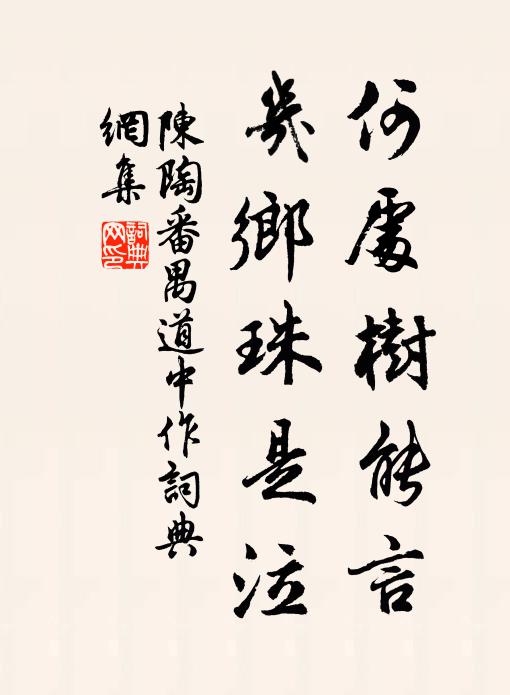 何處樹能言
幾鄉珠是泣
陳陶番禺道中作詞典
網集
詞典
网印